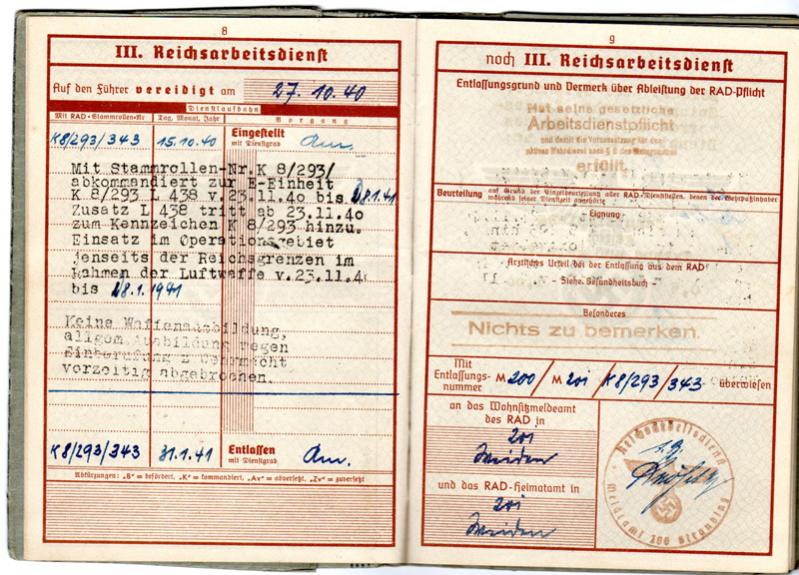 8
III. Reichsarbeitsdienst
Auf den Führer vereidigt am 27.10.40
Dienstlaufbahn
Mit RAD-Stammrollen-Nr. Tag, Monat, Jahr Vorgang
K8/293/343 15.10.40 Eingestellt
mit Dienstgrad Am.
Mit Stammrollen-Nr. K 8/293/
abkommandiert zur E-Einheit
K 8/293 L 438 v. 23.11.40 bis 28.1.41
Zusatz L 438 tritt ab 23.11.40
zum Kennzeichen K 8/293 hinzu.
Einsatz im Operationsgebiet
jenseits der Reichsgrenzen im
Rahmen der Luftwaffe v. 23.11.40
bis 28.1.1941
Keine Waffenausbildung,
allgem. Ausbildung wegen
Einberufung z Wehrmacht
vorzeitig abgebrochen.
K8/293/343 31.1.41 Entlassen
mit Dienstgrad Am.
Abkürzungen: „B" = befördert, „K" = kommandiert, „Av" = abversetzt, „Zv" = zuversetzt
9
noch III. Reichsarbeitsdienst
Entlassungsgrund und Vermerk über Ableistung der RAD-Pflicht
Hat seine gesetzliche
Arbeitsdienstpflicht
erfüllt.
Beurteilung auf Grund der Eingelbeurteilung aller RAD-Dienststellen, denen der Wehrpaßinhaber
während seiner Dienstzeit angehörte
Eignung
Ärztliches Urteil bei der Entlassung aus dem RAD
- Siehe Gesundheitsbuch -
Besonderes
Nichts zu bemerken.
Mit
Entlassungs-
nummer M 200/M 201/K8/293/343 überwiesen
an das Wohnsitzmeldeamt
des RAD in
201
Weiden
und das RAD-Heimatamt in
201
Weiden
Reichsarbeitsdienst
Meldeamt 200 Straubing